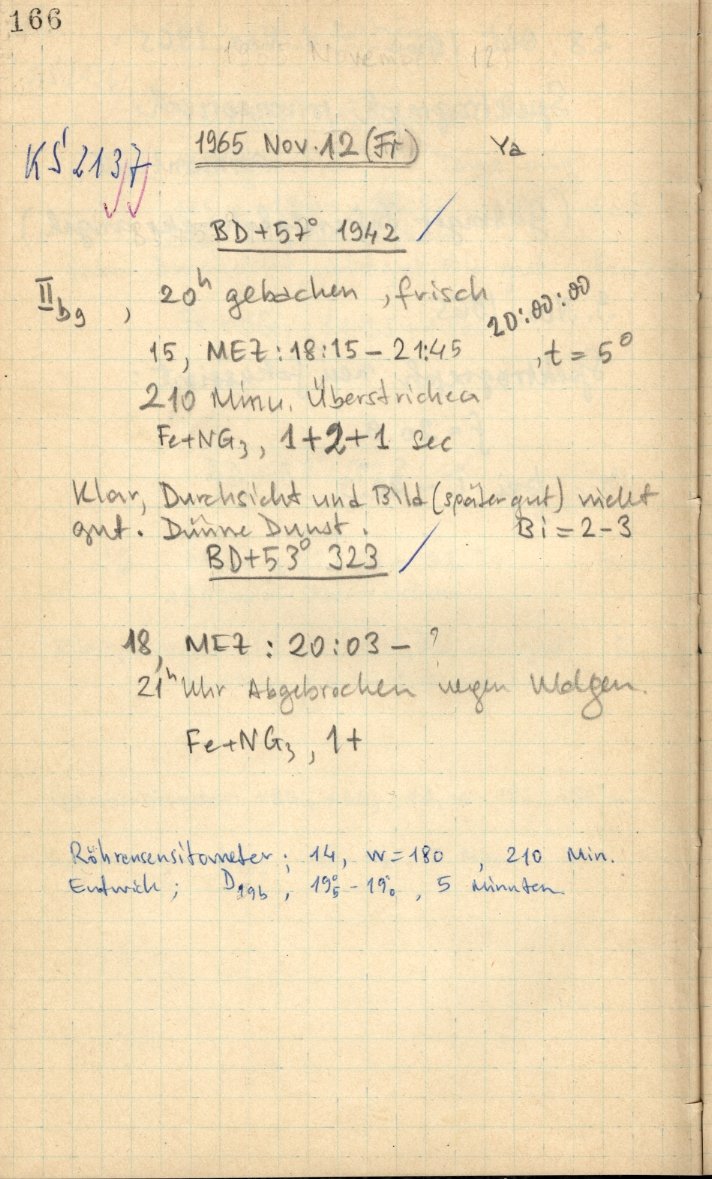 166
1965 Nov. 12 (Fr) Ya
KŚ 2137
BD+57° 1942
II bg, 20h gebachen, frisch
20:00:00
15, MEZ: 18:15 – 21:45, t = 5°
210 Minu. Überstrichen
Fe+NG3, 1+2+1 sec
Klar, Durchsicht und Bild (später gut) nicht
gut. Dünne Dunst. Bi = 2–3
BD+53° 323
18, MEZ: 20:03 – ?
21h Uhr Abgebrochen wegen Wolgen.
Fe+NG3, 1+
Röhrensensitometer; 14, w=180, 210 Min.
Entwick; D19b, 19°5 – 19°0, 5 Minuten